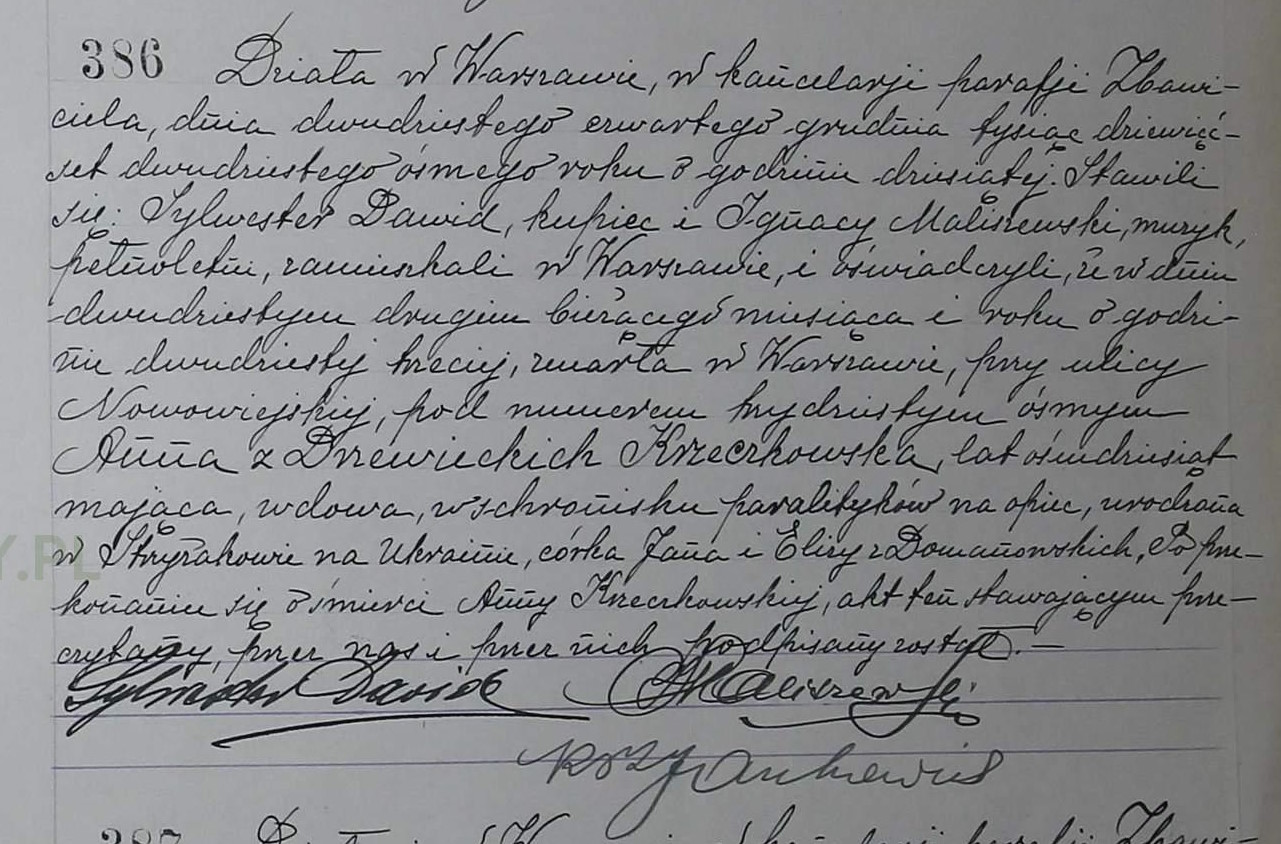 386 Działa w Warszawie, w kancelarji parafji Zbawi-
ciela, dnia dwudziestego czwartego grudnia tysiąc dziewięć-
set dwudziestego ósmego roku o godzinie dziesiątej. Stawili
się: Sylwester Dawid, kupiec i Ignacy Maliszewski, muzyk,
pełnoletni, zamieszkali w Warszawie, i oświadczyli, że w dniu
dwudziestym drugim bieżącego miesiąca i roku o godzi-
nie dwudziestej trzeciej, zmarła w Warszawie, przy ulicy
Nowowiejskiej, pod numerem trzydziestym ósmym
Anna z Drzewieckich Krzeczkowska, lat ośmdziesiąt
mająca, wdowa, w schronisku paralityków na opiec, urodzona
w Stryżakowie na Ukrainie, córka Jana i Elizy z Domanowskich, Po prze-
konaniu się o śmierci Anny Krzeczkowskiej, akt ten stawającym prze-
czytany, przez nas i przez nich podpisany został. —
Sylwester Dawid Maliszewski
387